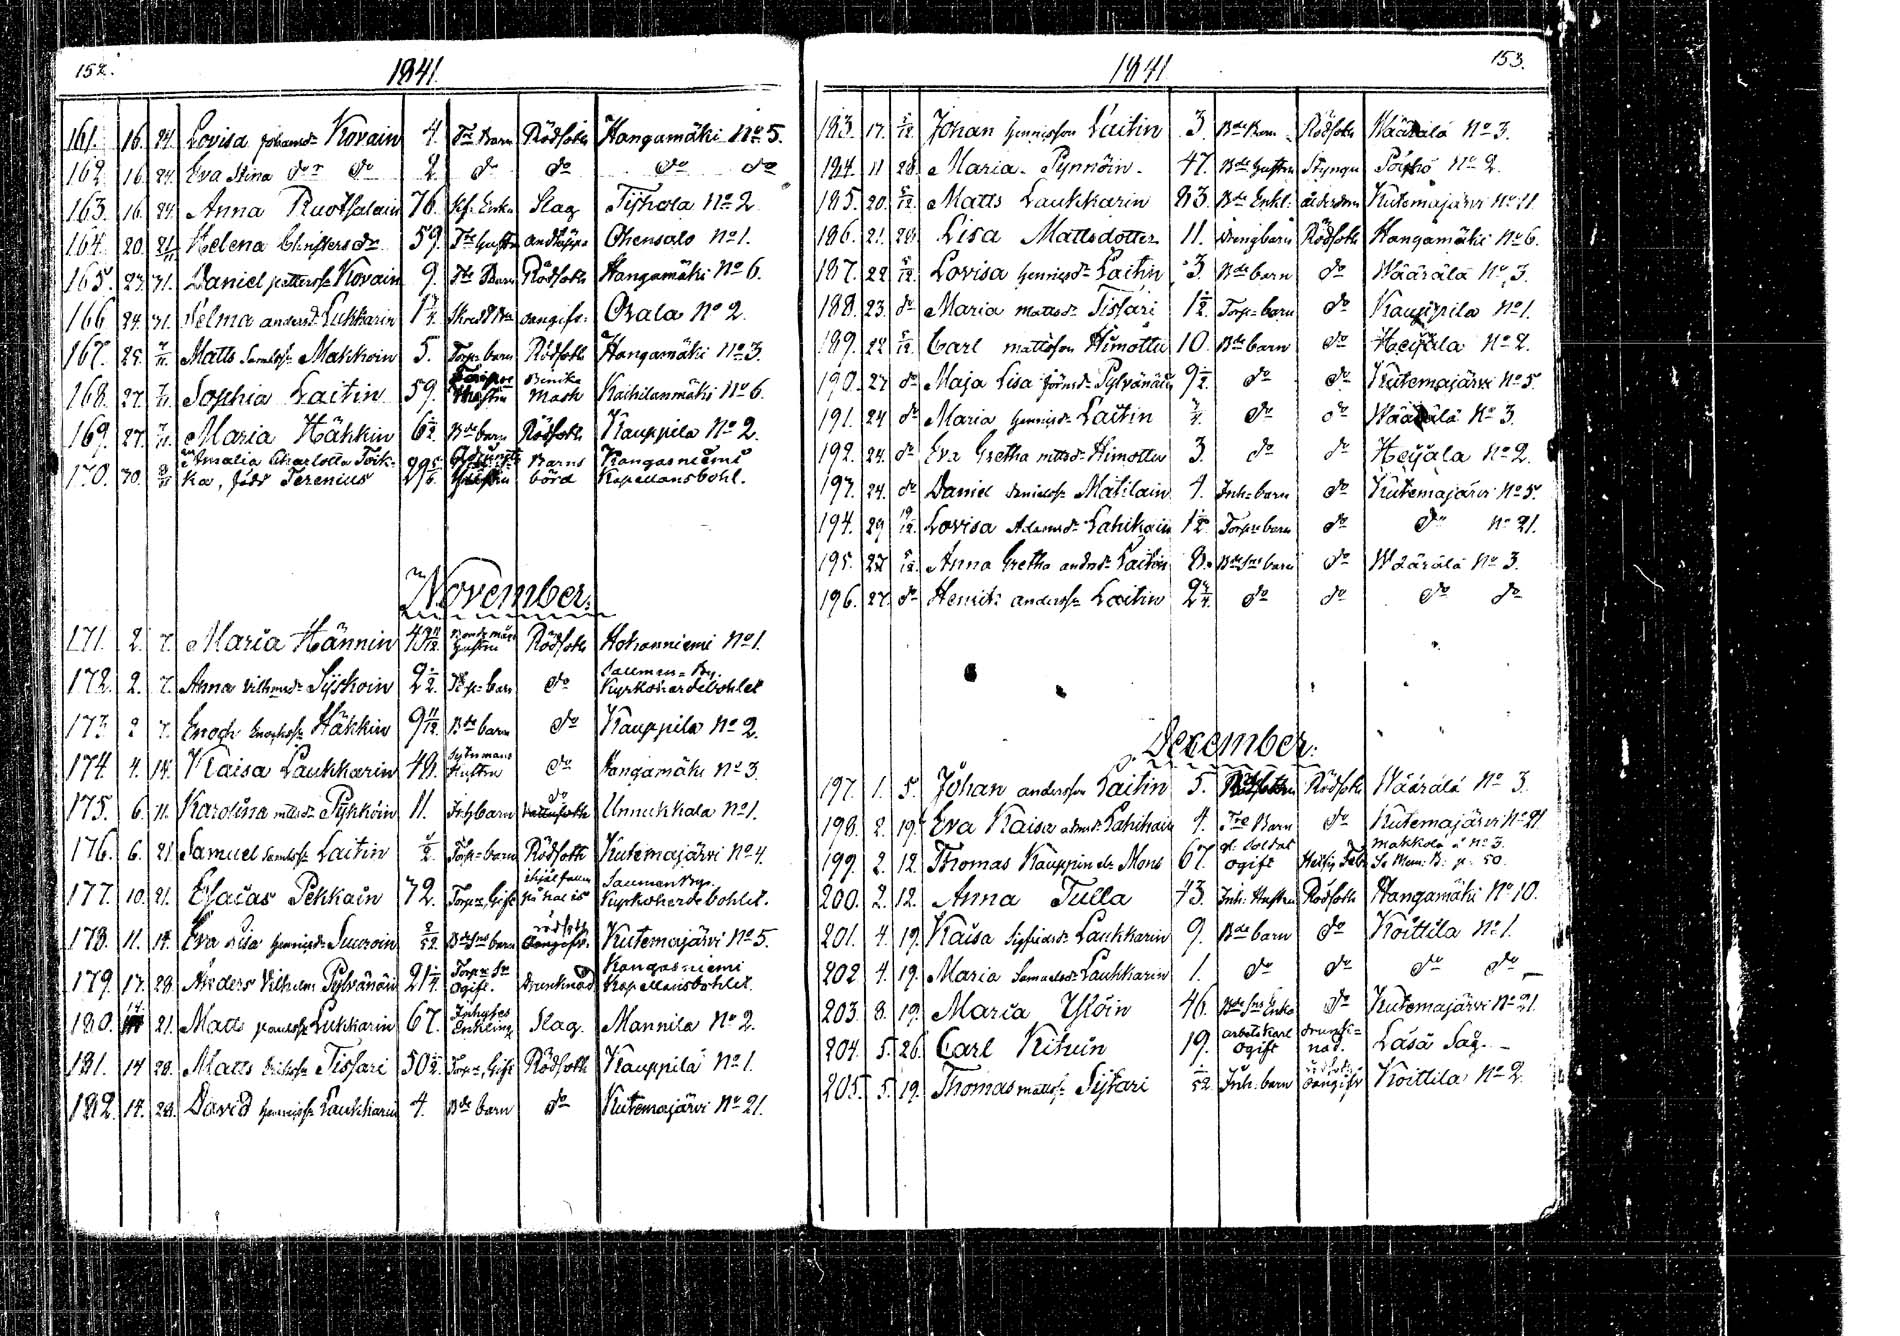 152.
1841.
161. 16. 24. Lovisa Johansdr Kovain 4. Tre Barn Rödsoth Hangamäki No 5.
162 16. 24. Eva Stina dor do 2 do do do do
163. 16. 24. Anna Ruotsalain 76. Enka Slag Tijhola No 2
164. 20. Helena Christersdr 59. Tre hustru andtäppa Ohensalo No 1.
165. 23. 31. Daniel pettersson Kovain 9. Tre Barn Rödsoth Hangamäki No 6.
166 24. 31. Selma andersdr Lukkarin oangifv. Orala No 2.
167. 25. Matts Samelss Makkoin 5. Torp barn Rödsoth Hangamäki No 3.
168. 27. Sophia Laitin 59. Hustru Binike Mask Kaihilanmäki No 6.
169. 27. Maria Häkkin 6½ Bde barn Rödsoth Kauppila No 2.
170. 30. Amalia Charlotta Toik-
ka, född Terenius Adjuncts Hustru Barns börd Kangasniemi Kapellansbohl.
November.
171. 2. 7. Maria Hännin Hustru Rödsoth Hokanniemi No 1.
172. 2. 7. Anna Vilhmsdr Sijskoin 2½ Torp-barn do Saumen-By. Kyrkoherdebohlet
173. 2 7. Enoch Enochss Häkkin 9 11/12 Bde barn do Kauppila No 2.
174. 4. 14. Kaisa Laukkarin 40. Sytnmans Hustru do Hangamäki No 3.
175. 6. 11. Karolina mttsdr Pykköin 11. Inh. barn do Unnukkala No 1.
176. 6. 21. Samuel Samelss Laitin ½ Torp-barn Rödsoth Kutemajärvi No 4.
177. 10. 21. Esaias Pekkain 72. Torpr, Gift ihjälfallen på hal is Saumen By. Kyrkoherdebohlet.
178. 11. 14. Eva Lisa Henricsdr Suuroin 2/52 Bde Sns barn rödsoth Oangifv. Kutemajärvi No 5.
179. 17. 28 Anders Vilhelm Pylvänäin 21¼ Torprs Sn ogift. Drunknad Kangasniemi Kapellansbohlet.
180. 14 21. Matts paulss Lukkarin 67. Inhyses Enkling Slag. Mannila No 2.
181. 14 28. Matts Erikss Tissari 50½ Torpr, Gift Rödsoth Kauppila No 1.
182. 14. 28. David Henricss Laukkarin 4. Bde barn do Kutemajärvi No 21.
1841
153.
183. 17. 5/12. Johan Henricsson Laitin 3. Bde Barn Rödsoth Wäärälä No 3.
184. 11 28. Maria Pynnöin 47. Bde Hustru Styngn No 2.
185. 20. 5/12. Matts Laukkarin 83. Bde Enkl. ålderdom Kutemajärvi No 21.
186. 21. 28. Lisa Mattsdotter 11. Drengbarn Rödsoth Hangamäki No 6.
187. 22 5/12. Lovisa Henricsdr Laitin 3. Bde barn do Wäärälä No 3.
188. 23. do Maria mattsdr Tissari 1½ Torp-barn do Kauppila No 1.
189. 22 5/12. Carl mattsson Himottu 10. Bde barn do Heijälä No 2.
190. 27 do Maja Lisa Pylvänäin 9½ do do Kutemajärvi No 5.
191. 24 do Maria Henricsdr Laitin ¾ do do Wäärälä No 3.
192. 24. do Eva Gretha mttsdr Himottu 3. do do Heijälä No 2.
197. 24. do Daniel Danielss Matilain 4. Inh-barn do Kutemajärvi No 5.
194. 29 19/12. Lovisa Adamsdr Lahikain 1½ Torpr barn do do No 21.
195. 27 5/12. Anna Gretha andrsdr Laitin 8. Bde Sns barn do Wäärälä No 3.
196. 27. do Henric anderss Laitin 2¾. do do do do
December.
197. 1. 5. Johan andersson Laitin 5. Rödsoth Wäärälä No 3.
198. 2. 19. Eva Kaisa admsdr Lahikain 4. Tre Barn do Kutemajärvi No 21.
199. 2. 12. Thomas Kauppin els Mons 67. gl. Soldat ogift Hetsig Feb. Makkola No 3. Se Mem: B: p. 50.
200. 2. 12. Anna Tulla 43. Inh. Hustru Rödsoth Hangamäki No 10.
201. 4. 19. Kaisa Sigfridsdr Laukkarin 9. Bde barn do Koittila No 1.
202 4. 19. Maria Samuelsdr Laukkarin 1. do do do do
203. 8. 19. Maria Ylöin 46. Bde Sns Enka do Kutemajärvi No 21.
204. 5. 26. Carl Kihuin 19. arbetskarl ogift drunk-nad. Läsä Såg.
205. 5. 19. Thomas mattss Sijkari 1/52 Inh. barn rödsoth Oangifv Koittila No 2